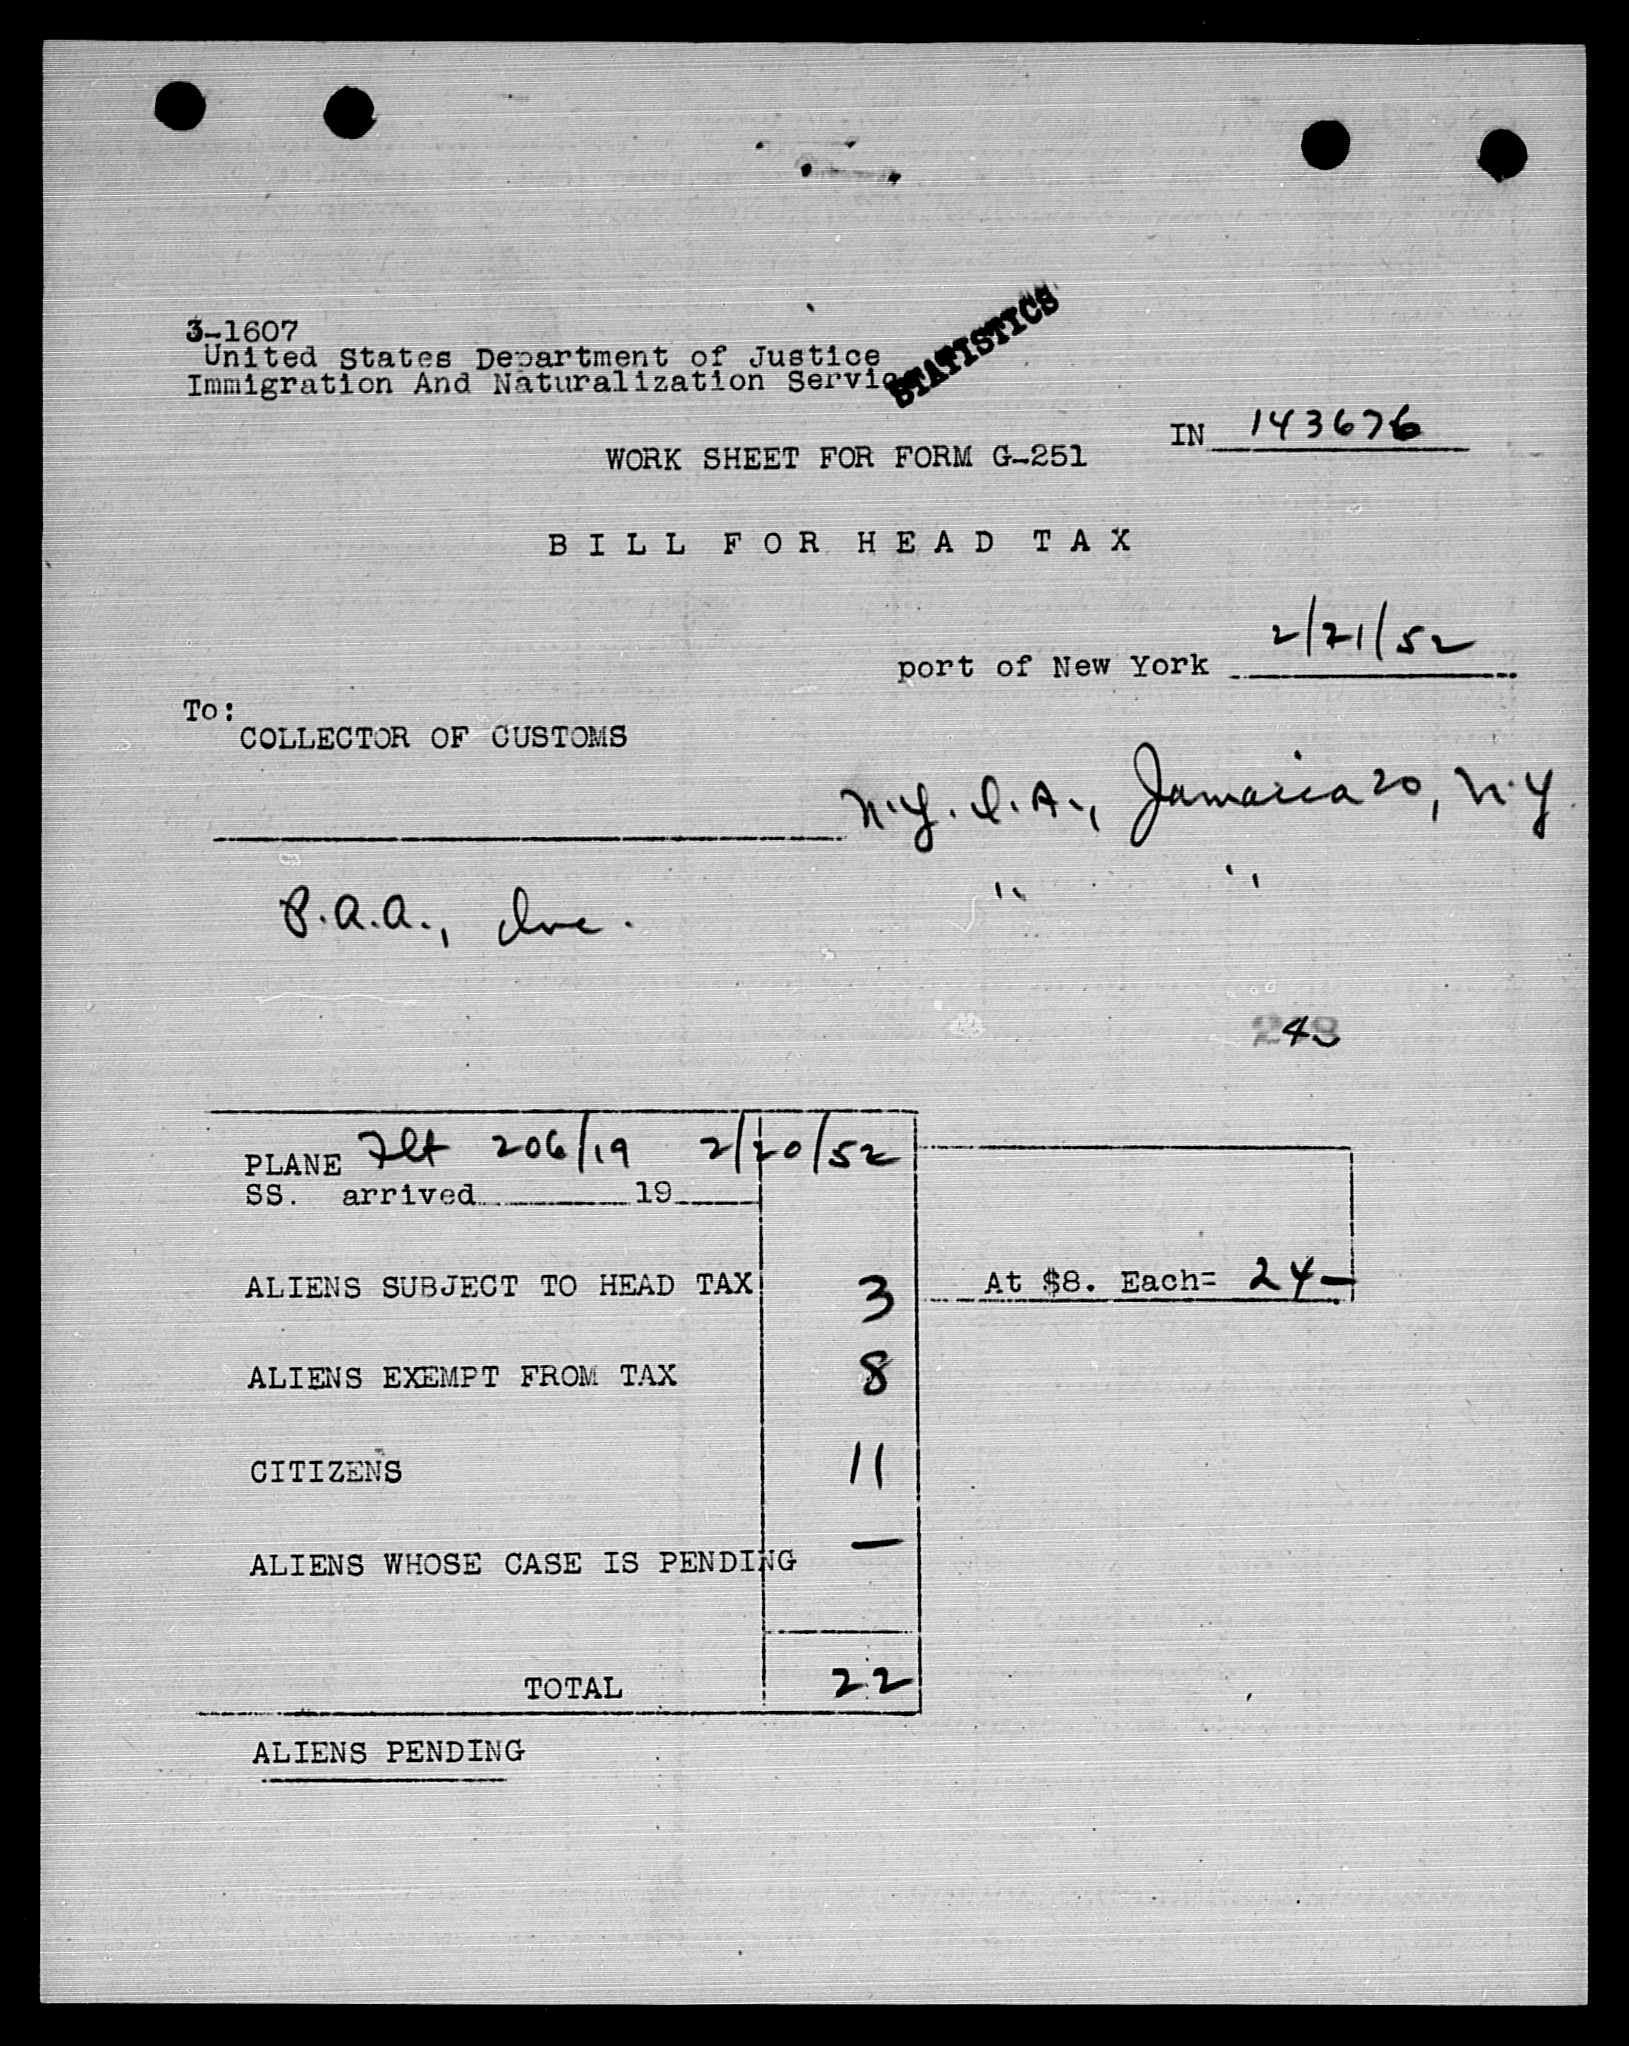 3-1607
United States Department of Justice
Immigration And Naturalization Servic
STATISTICS
IN 143676
WORK SHEET FOR FORM G-251
BILL FOR HEAD TAX
2/21/52
port of New York
To:
COLLECTOR OF CUSTOMS
N.Y. I.A., Jamaica 20, N.Y.
P.A.A., Inc. " "
248
PLANE Flt 206/19 2/20/52
SS. arrived 19
ALIENS SUBJECT TO HEAD TAX 3 At $8. Each= 24-
ALIENS EXEMPT FROM TAX 8
CITIZENS 11
ALIENS WHOSE CASE IS PENDING —
TOTAL 22
ALIENS PENDING